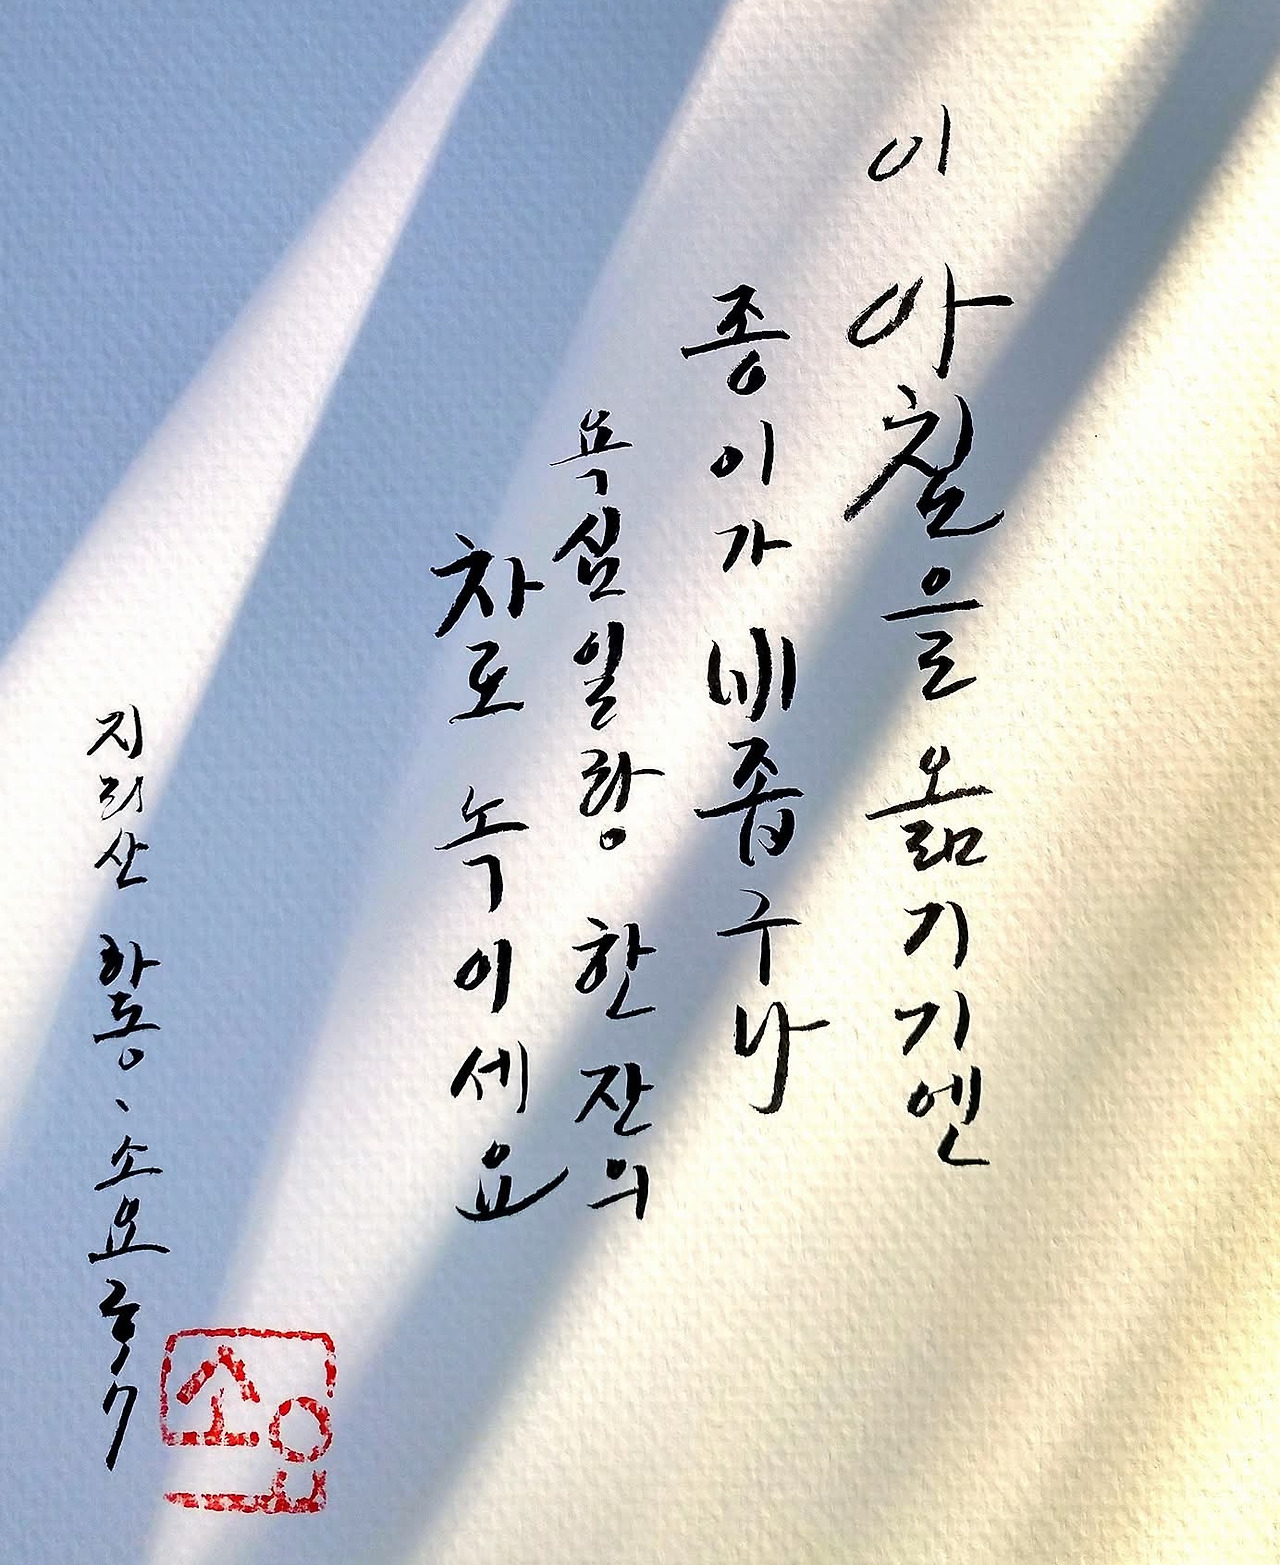 이 아침을 옮기기엔
종이가 비좁구나
욕심일랑 한 잔의
차로 녹이세요
지리산 화동、소요
소요